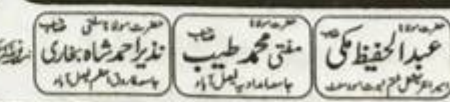 حضرت مولانا
عبدالحفیظ مکی صاحب
حضرت مولانا
مفتی محمد طیب صاحب
جامعہ امدادیہ فیصل آباد
حضرت مولانا مفتی صاحب
نذیر احمد شاہ بخاری
جامعہ فاروق اعظم فیصل آباد